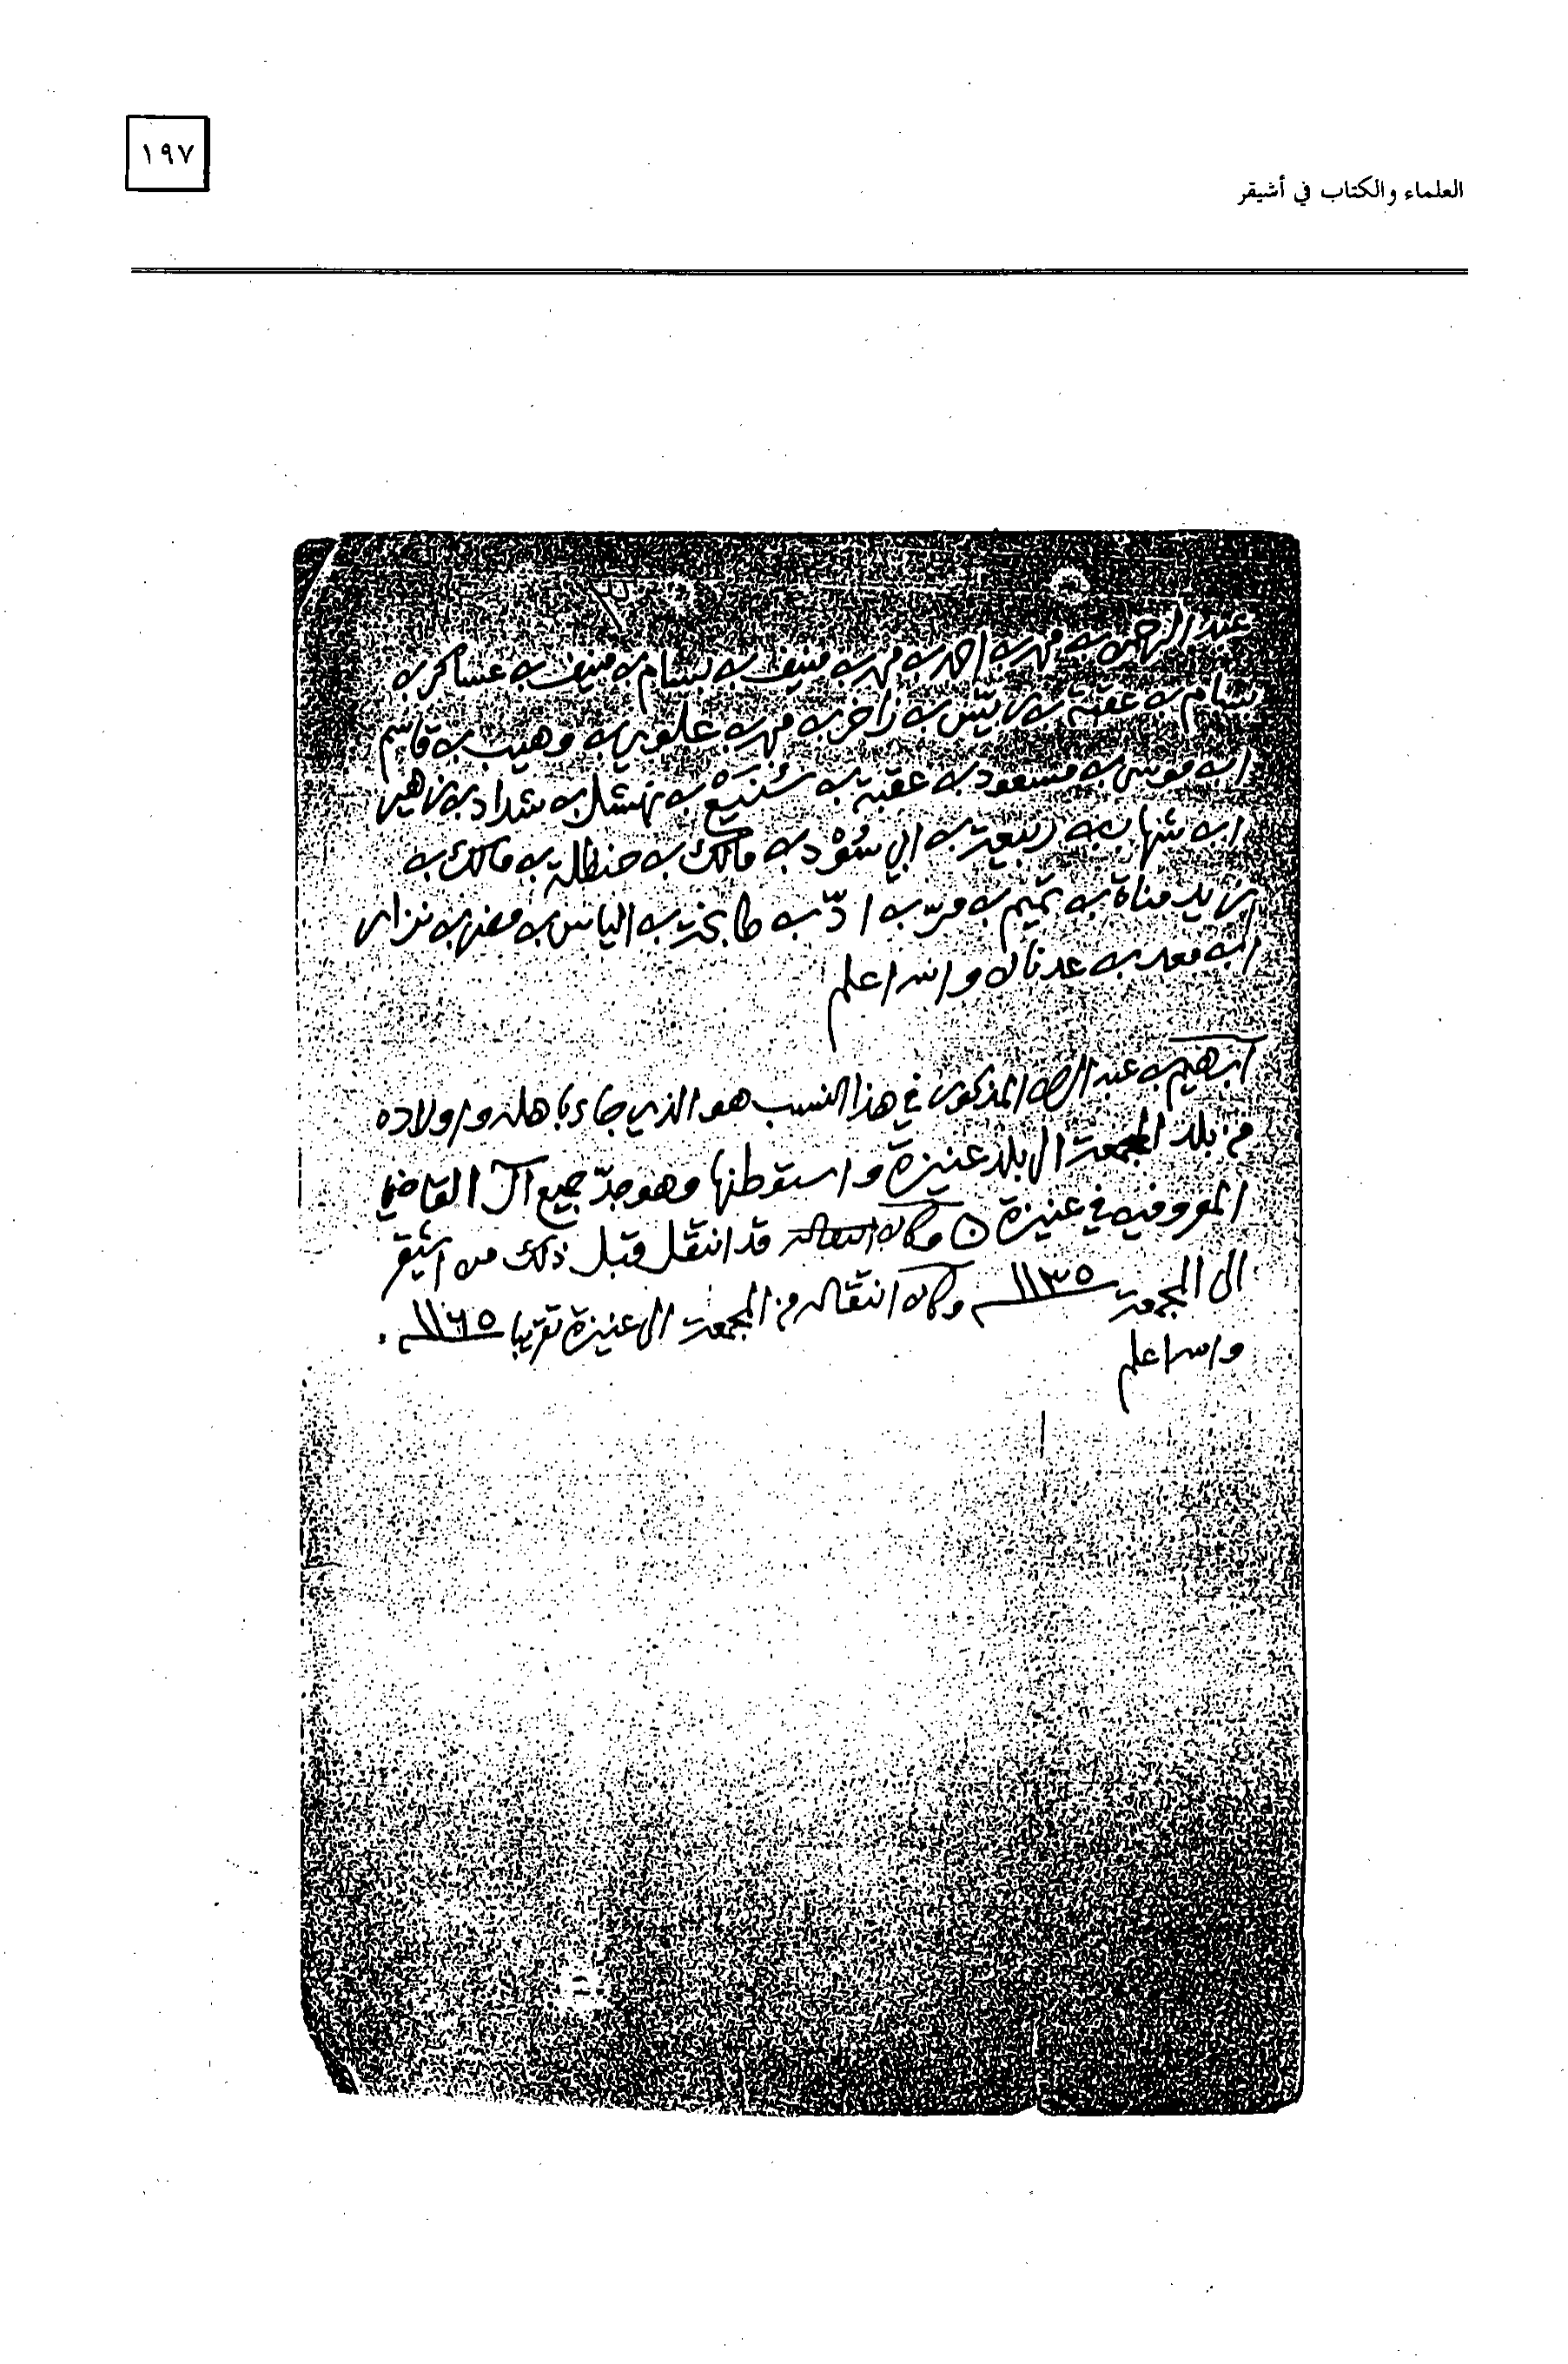 ١٩٧
العلماء والكتاب في أشيقر
عبد الرحمن بن محمد بن احمد بن محمد بن منيف بن بسام بن منيف بن عساكر بن
بسام بن عقبة بن ريّس بن زاخر بن محمد بن علوي بن وهيب بن قاسم
ابن موسى بن مسعود بن عقبة بن سُنَيع بن نهشل بن شداد بن زهير
ابن شهاب بن ربيعة بن ابي سُوْد بن مالك بن حنظلة بن مالك بن
زيد مناة بن تميم بن مرّ بن ادّ بن طابخة بن الياس بن مضر بن نزار
ابن معد بن عدنان والله اعلم
ابرهيم بن عبد الرحمن المذكور في هذا النسب هو الذي جاء باهله واولاده
من بلد المجمعة الى بلد عنيزة واستوطنها وهو جدّ جميع آل القاضي
المعروفين في عنيزة وكان قد انتقل قبل ذلك من اشيقر
الى المجمعة ١١٣٥ وكان انتقاله من المجمعة الى عنيزة تقريبا ١١٦٥
والله اعلم